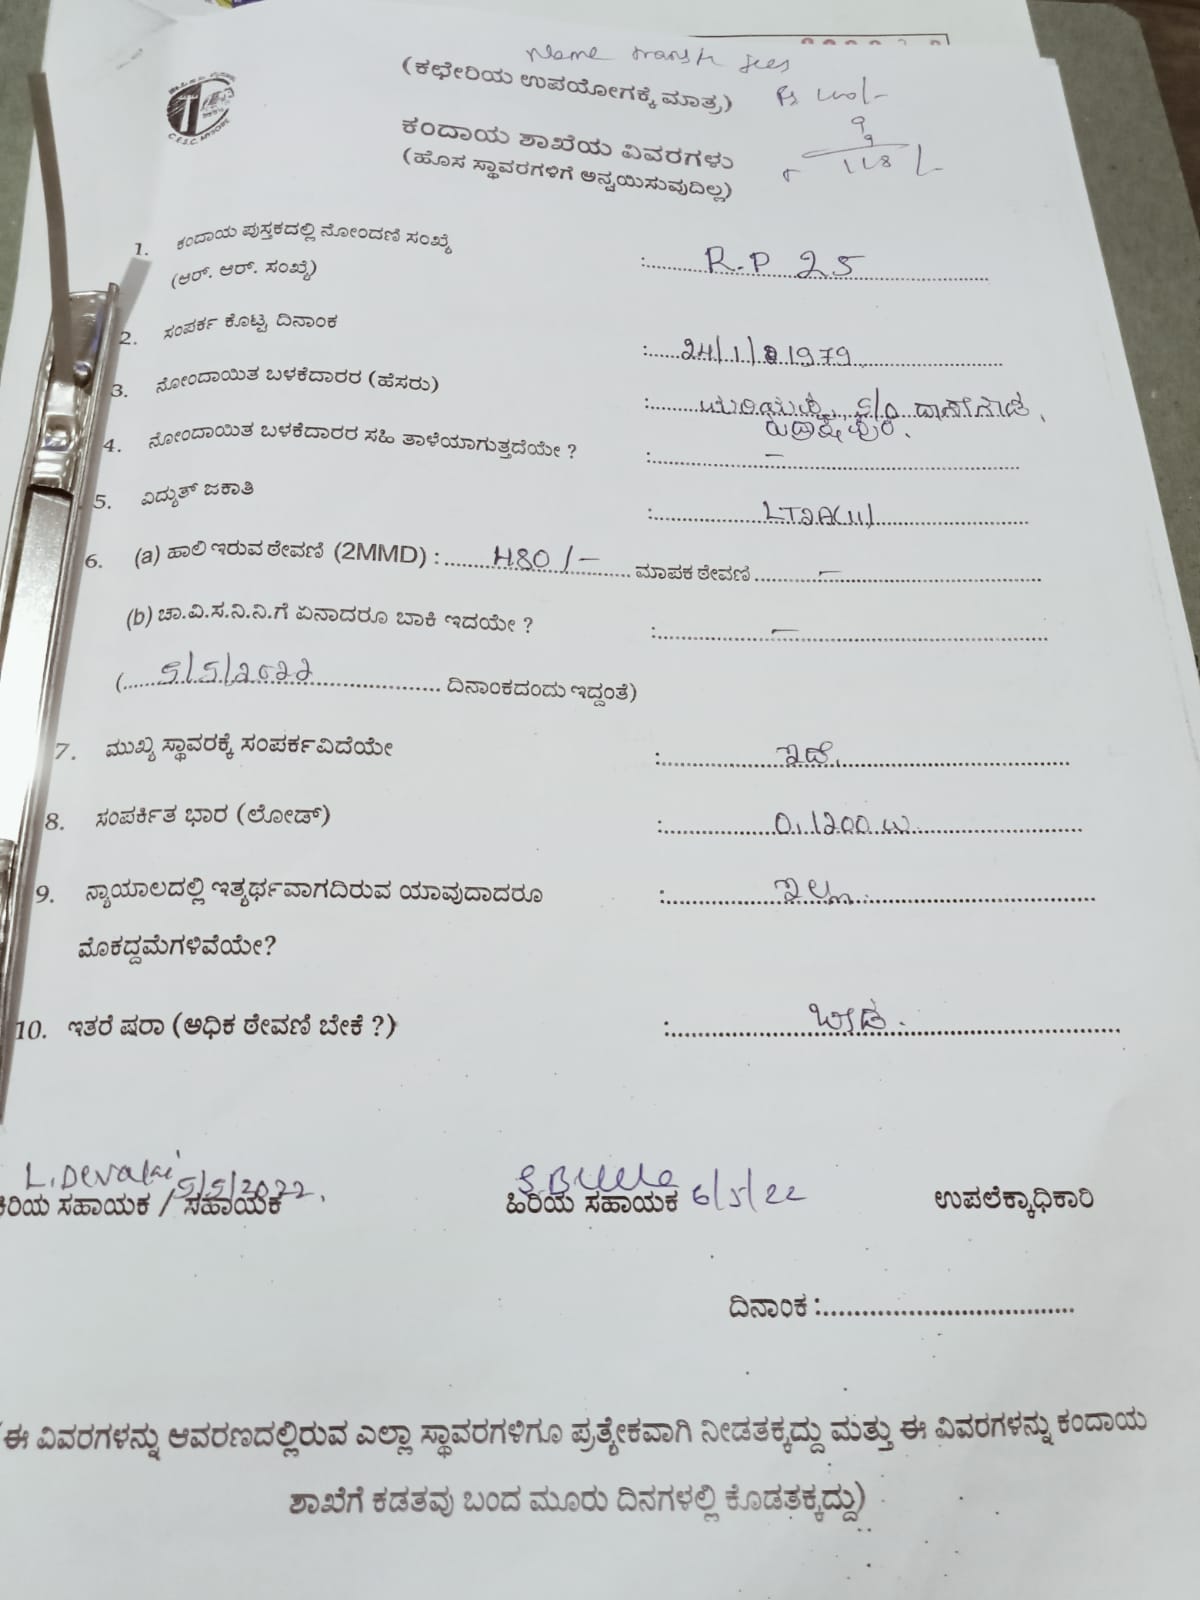 Name transfr fees
(ಕಛೇರಿಯ ಉಪಯೋಗಕ್ಕೆ ಮಾತ್ರ)
Rs 100/-
9
9
118/-
C.E.S.C. MYSORE
ಕಂದಾಯ ಶಾಖೆಯ ವಿವರಗಳು
(ಹೊಸ ಸ್ಥಾವರಗಳಿಗೆ ಅನ್ವಯಿಸುವುದಿಲ್ಲ)
1. ಕಂದಾಯ ಪುಸ್ತಕದಲ್ಲಿ ನೋಂದಣಿ ಸಂಖ್ಯೆ
(ಆರ್. ಆರ್. ಸಂಖ್ಯೆ) : R.P 25
2. ಸಂಪರ್ಕ ಕೊಟ್ಟ ದಿನಾಂಕ : 24/1/1979
3. ನೋಂದಾಯಿತ ಬಳಕೆದಾರರ (ಹೆಸರು) : S/o
4. ನೋಂದಾಯಿತ ಬಳಕೆದಾರರ ಸಹಿ ತಾಳೆಯಾಗುತ್ತದೆಯೇ ? : –
5. ವಿದ್ಯುತ್ ಜಕಾತಿ : LT2A(11)
6. (a) ಹಾಲಿ ಇರುವ ಠೇವಣಿ (2MMD) : 480/- ಮಾಪಕ ಠೇವಣಿ –
(b) ಚಾ.ವಿ.ಸ.ನಿ.ನಿ.ಗೆ ಏನಾದರೂ ಬಾಕಿ ಇದಯೇ ? : –
(5/5/2022 ದಿನಾಂಕದಂದು ಇದ್ದಂತೆ)
7. ಮುಖ್ಯ ಸ್ಥಾವರಕ್ಕೆ ಸಂಪರ್ಕವಿದೆಯೇ : ಇದೆ.
8. ಸಂಪರ್ಕಿತ ಭಾರ (ಲೋಡ್) :
9. ನ್ಯಾಯಾಲದಲ್ಲಿ ಇತ್ಯರ್ಥವಾಗದಿರುವ ಯಾವುದಾದರೂ : ಇಲ್ಲ.
ಮೊಕದ್ದಮೆಗಳಿವೆಯೇ?
10. ಇತರೆ ಷರಾ (ಅಧಿಕ ಠೇವಣಿ ಬೇಕೆ ?) : ಬೇಡ.
5/5/2022. 6/5/22
ಕಿರಿಯ ಸಹಾಯಕ / ಸಹಾಯಕ ಹಿರಿಯ ಸಹಾಯಕ ಉಪಲೆಕ್ಕಾಧಿಕಾರಿ
ದಿನಾಂಕ :
(ಈ ವಿವರಗಳನ್ನು ಆವರಣದಲ್ಲಿರುವ ಎಲ್ಲಾ ಸ್ಥಾವರಗಳಿಗೂ ಪ್ರತ್ಯೇಕವಾಗಿ ನೀಡತಕ್ಕದ್ದು ಮತ್ತು ಈ ವಿವರಗಳನ್ನು ಕಂದಾಯ
ಶಾಖೆಗೆ ಕಡತವು ಬಂದ ಮೂರು ದಿನಗಳಲ್ಲಿ ಕೊಡತಕ್ಕದ್ದು)